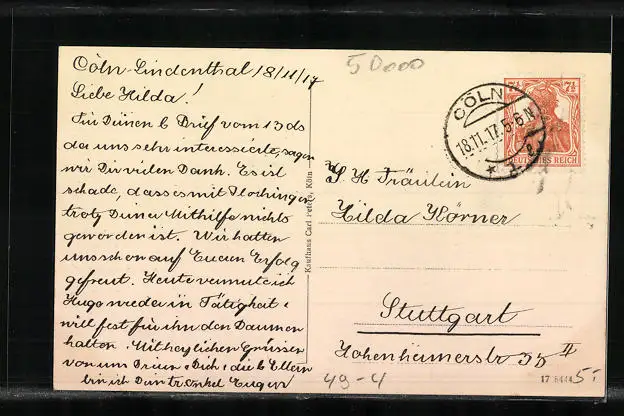 Cöln-Lindenthal 18/11/17
Liebe Hilda!
Für Deinen l. Brief vom 13 ds
der uns sehr interessierte, sagen
wir Dir vielen Dank. Es ist
schade, dass es mit Plochingen
trotz Deiner Mithilfe nichts
geworden ist. Wir hatten
uns schon auf Eueren Erfolg
gefreut. Heute vermute ich
Hugo wieder in Tätigkeit &
will fest für ihn den Daumen
halten. Mit herzlichen Grüssen
von uns Dreien a. Dich & die l. Eltern
bin ich Dein tr. Onkel Eugen
Kaufhaus Carl Peters, Köln
50000
CÖLN
18.11.17.5-6N
7½ 7½
DEUTSCHES REICH
Fräulein
Hilda Körner
Stuttgart
Hohenheimerstr 55 II
49-4
5.-